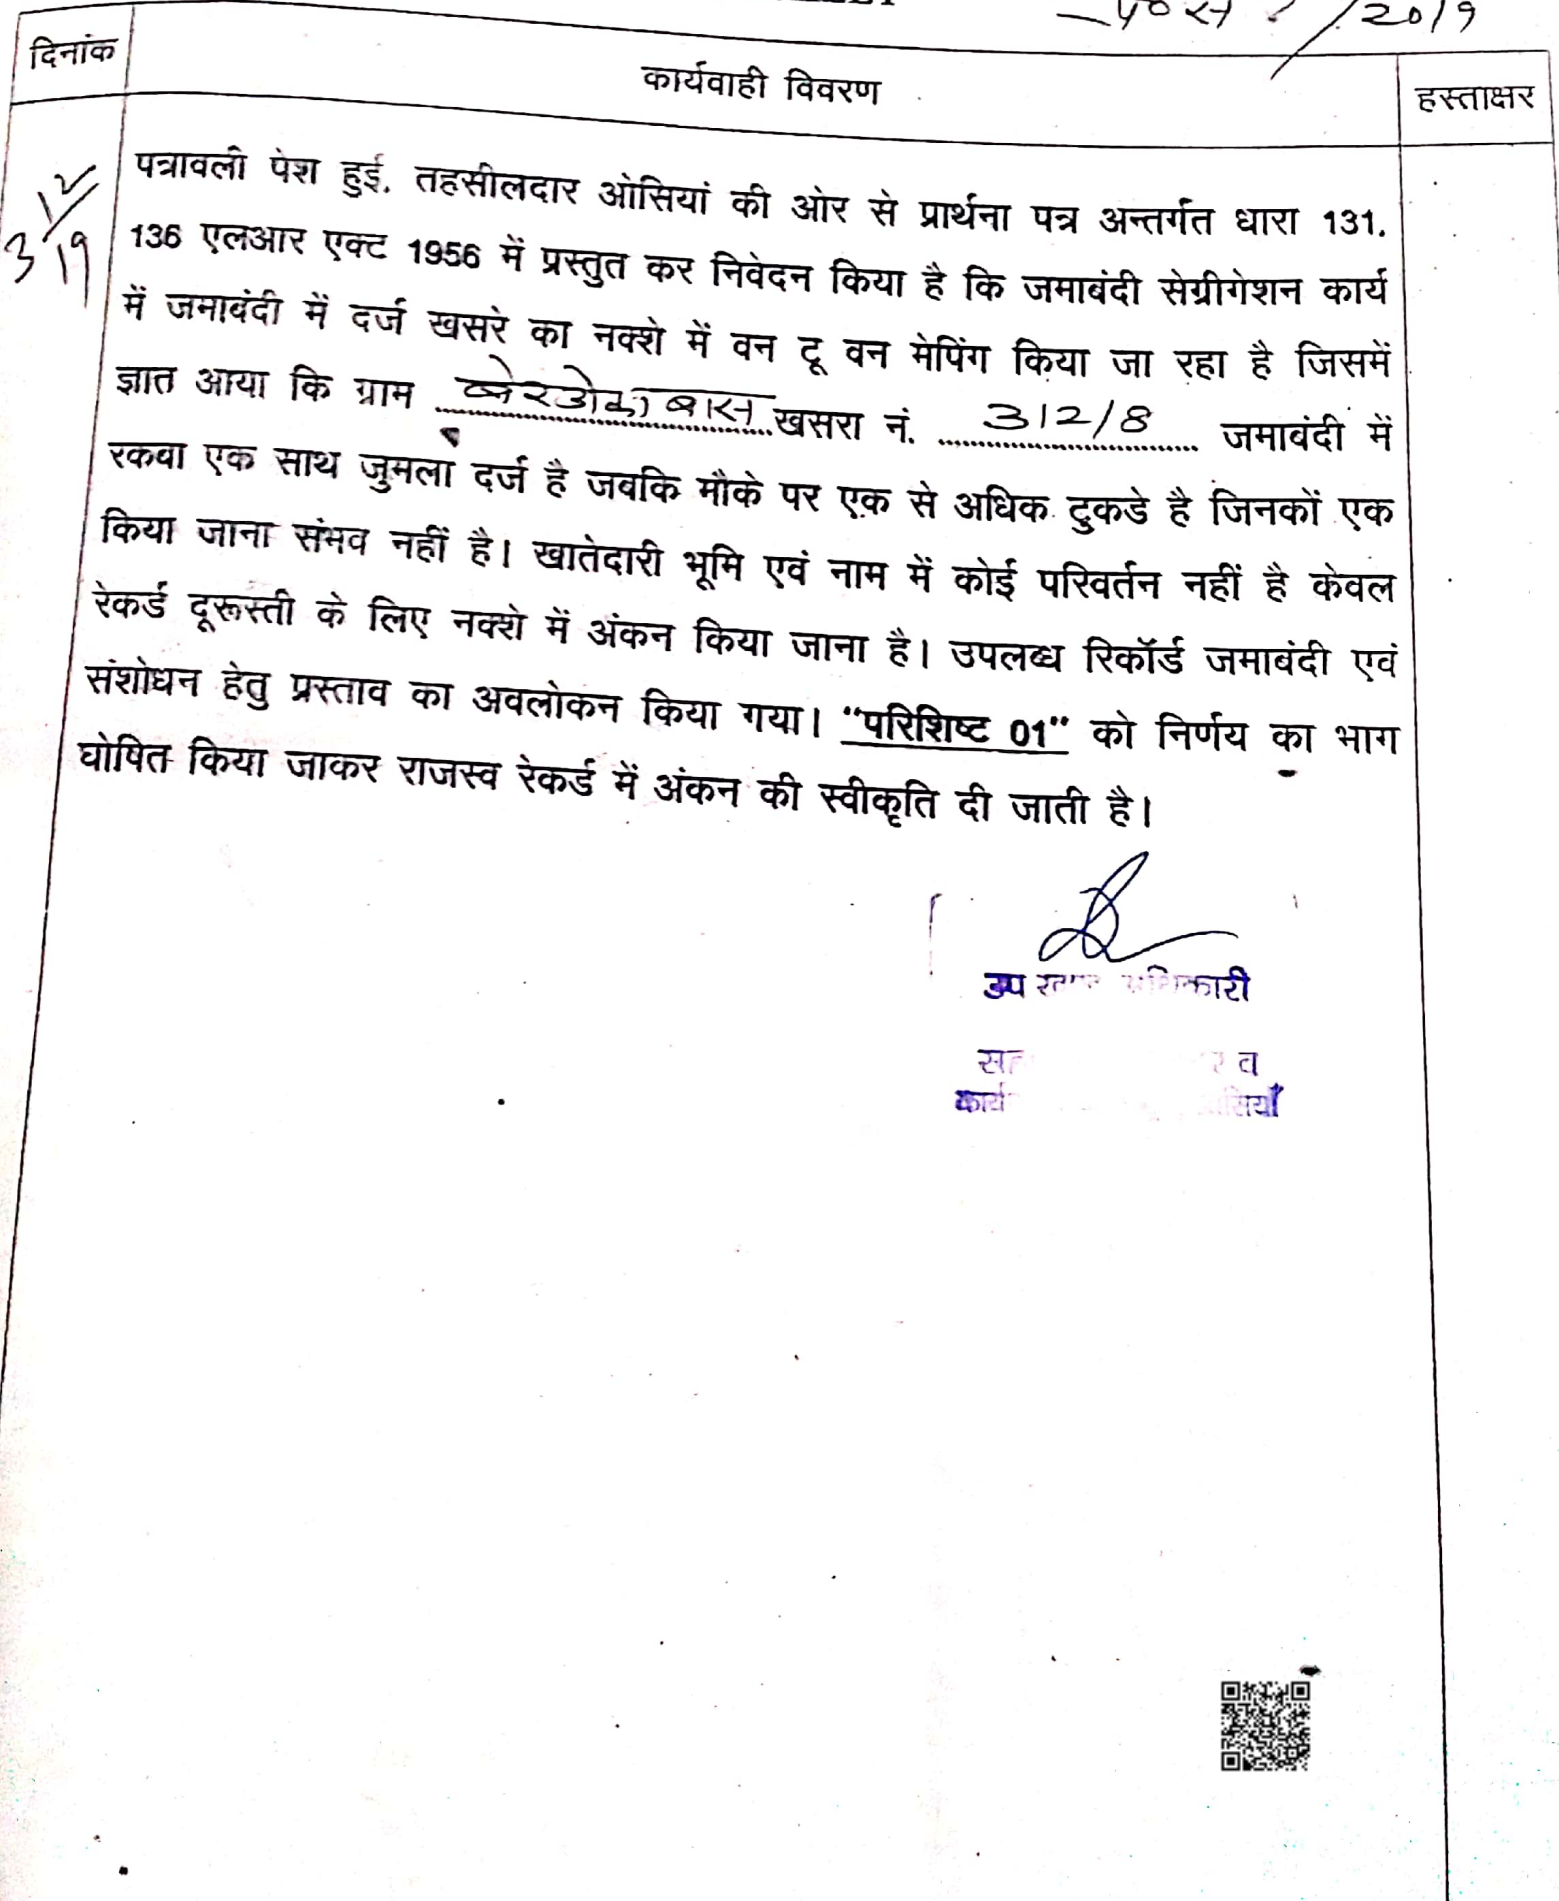 /2019
दिनांक
कार्यवाही विवरण
हस्ताक्षर
पत्रावली पेश हुई. तहसीलदार ओसियां की ओर से प्रार्थना पत्र अन्तर्गत धारा 131.
136 एलआर एक्ट 1956 में प्रस्तुत कर निवेदन किया है कि जमाबंदी सेग्रीगेशन कार्य
में जमाबंदी में दर्ज खसरे का नक्शे में वन टू वन मेपिंग किया जा रहा है जिसमें
ज्ञात आया कि ग्राम खसरा नं. 312/8 जमाबंदी में
रकवा एक साथ जुमला दर्ज है जबकि मौके पर एक से अधिक टुकडे है जिनकों एक
किया जाना संभव नहीं है। खातेदारी भूमि एवं नाम में कोई परिवर्तन नहीं है केवल
रेकर्ड दूरूस्ती के लिए नक्शे में अंकन किया जाना है। उपलब्ध रिकॉर्ड जमाबंदी एवं
संशोधन हेतु प्रस्ताव का अवलोकन किया गया। "परिशिष्ट 01" को निर्णय का भाग
घोषित किया जाकर राजस्व रेकर्ड में अंकन की स्वीकृति दी जाती है।
उप